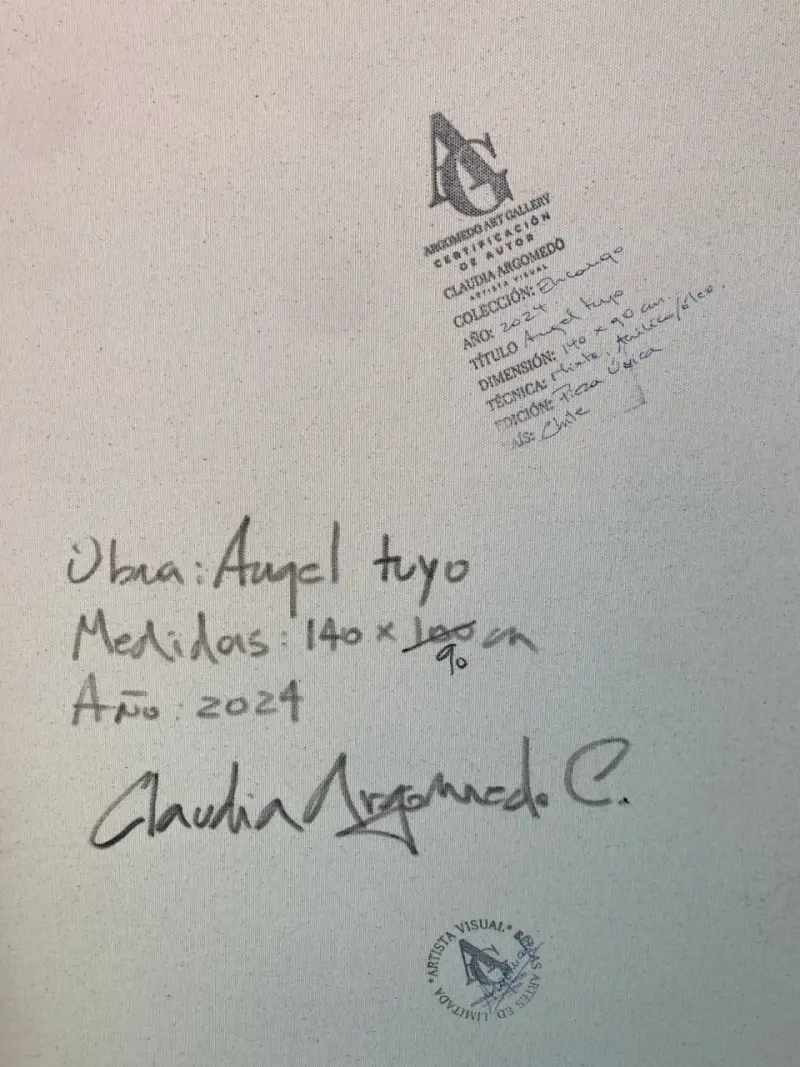 AG
ARGOMEDO ART GALLERY
CERTIFICACIÓN
DE AUTOR
CLAUDIA ARGOMEDO
ARTISTA VISUAL
COLECCIÓN: Encargo
AÑO: 2024
TÍTULO Angel tuyo
DIMENSIÓN: 140 x 90 cm.
TÉCNICA: Mixta, Acrílico/óleo.
EDICIÓN: Pieza Única
PAÍS: Chile
Obra: Angel tuyo
Medidas: 140 x 100 cm
90
Año: 2024
Claudia Argomedo C.
*ARTISTA VISUAL* BELLAS ARTES ED. LIMITADA
AG